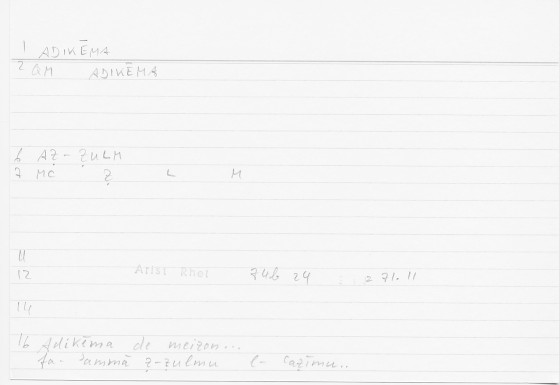 1 ADIKĒMA
2 GM ADIKĒMA
6 AẒ-ẒULM
7 MC Ẓ L M
11
12 Arist Rhet 74b 24 = 71.11
14
16 Adikēma de meizon...
fa-ʾammā ẓ-ẓulmu l-ʿaẓīmu..